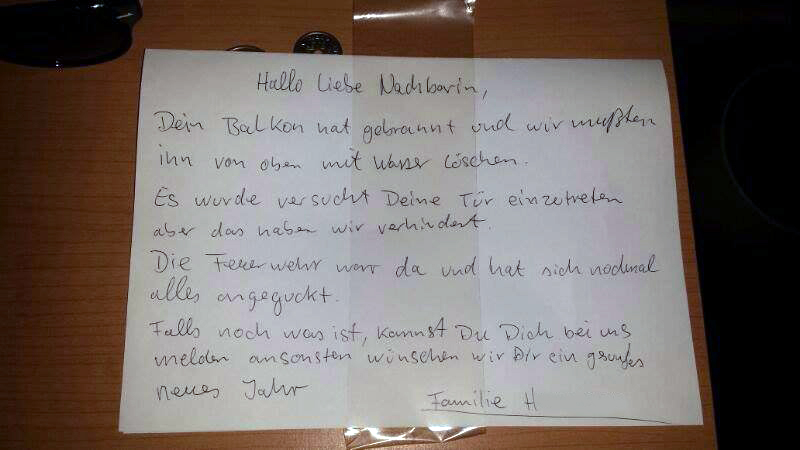 Hallo Liebe Nachbarin,
Dein Balkon hat gebrannt und wir mußten
ihn von oben mit Wasser Löschen.
Es wurde versucht Deine Tür einzutreten
aber das haben wir verhindert.
Die Feuerwehr war da und hat sich nochmal
alles angeguckt.
Falls noch was ist, kannst Du Dich bei uns
melden ansonsten wünschen wir Dir ein
neues Jahr
Familie H